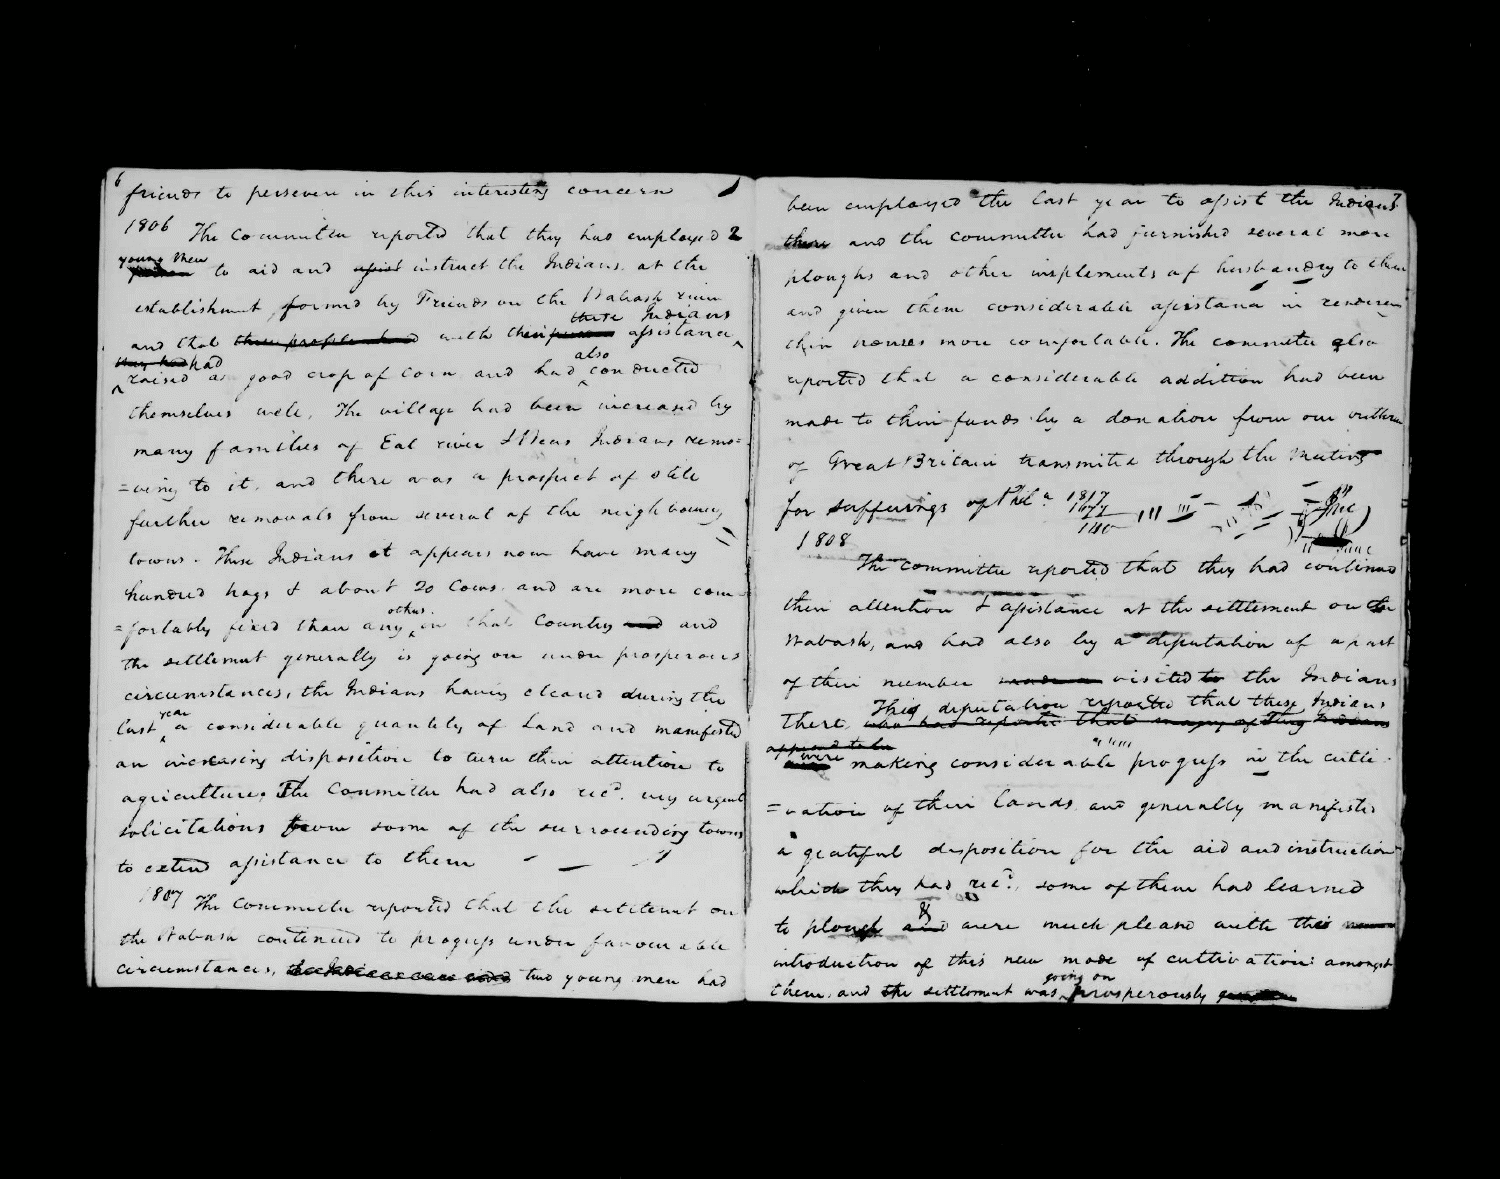 6
friends to persevere in this interesting concern
1806 The Committee reported that they had employed 2
young Men
to aid and assist instruct the Indians at the
establishment formed by Friends on the Wabash river
these Indians
and that these people had with their assistance
they had had also
raised a good crop of Corn and had conducted
themselves well, The village had been increased by
many families of Eal river & Weas Indians remo=
=ving to it, and there was a prospect of still
further removals from several of the neighbouring
towns. These Indians it appears now have many
hundred hogs & about 20 Cows and are more com=
others
=fortably fixed than any in that Country and and
the settlement generally is going on under prosperous
circumstances, the Indians having cleared during the
year
last a considerable quantity of Land and manifested
an increasing disposition to turn their attention to
agriculture, The Committee had also recd. very urgent
solicitations from some of the surrounding towns
to extend assistance to them
1807 The Committee reported that the settlement on
the Wabash continued to progress under favourable
circumstances, the Indians were aided two young men had
7
been employed the last year to assist the Indians
there and the committee had furnished several more
ploughs and other implements of husbandry to them
and given them considerable assistance in rendering
their houses more comfortable. The committee also
reported that a considerable addition had been
made to their funds by a donation from our brethren
of Great Britain transmitted through the Meeting
for sufferings of Phila. 1817
1808
The committee reported that they had continued
their attention & assistance at the settlement on the
Wabash, and had also by a deputation of a part
of their number visited to the Indians
This deputation reported that these Indians
there, who had reported that many of the Indians
appeared to be
were making considerable progress in the culti-
=vation of their lands and generally manifested
a grateful disposition for the aid and instruction
which they had recd., some of them had learned
to plough and & were much pleased with this
introduction of this new mode of cultivation amongst
going on
them, and the settlement was prosperously